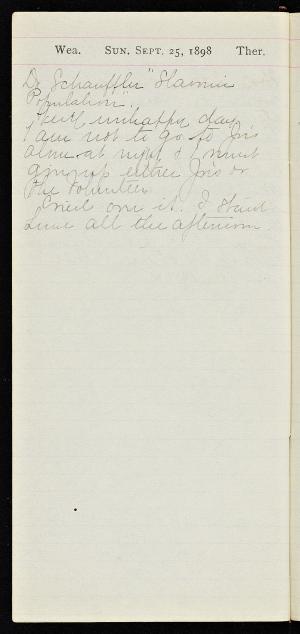 Wea. Sun. Sept. 25, 1898 Ther.
Dr Schauffler "Slavonic
Population".
Very unhappy day
I am not to go to Jo's
alone at night & I must
give up either Jo's or
the Volunteer
Cried over it. I staid
home all the afternoon.